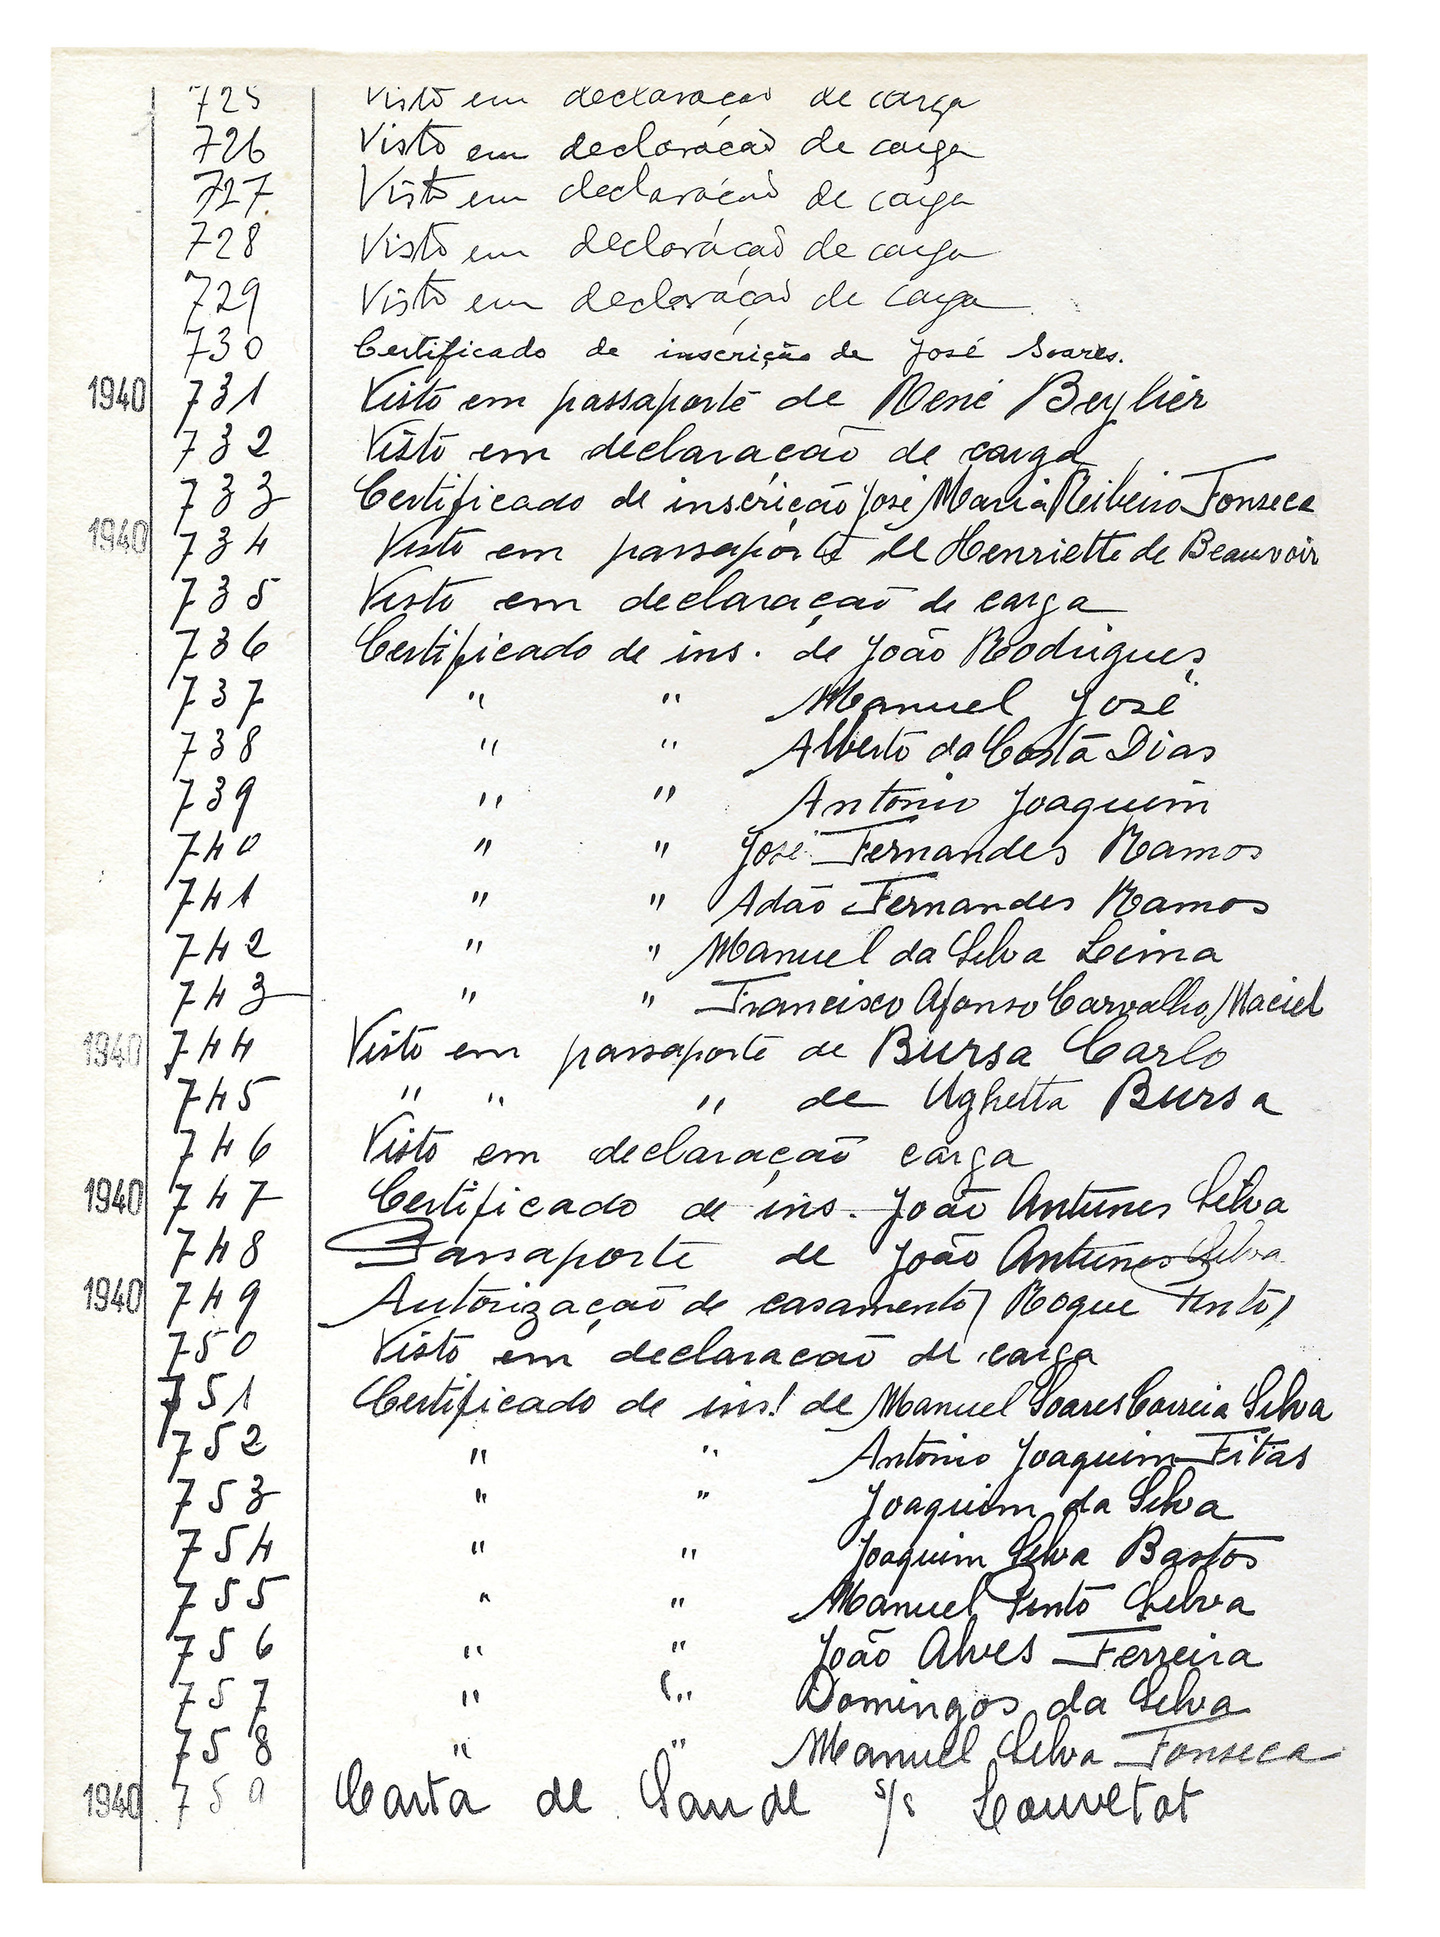 725 Visto em declaração de carga
726 Visto em declaração de carga
727 Visto em declaração de carga
728 Visto em declaração de carga
729 Visto em declaração de carga
730 Certificado de inscrição de José Soares.
1940 731 Visto em passaporte de René Beylier
732 Visto em declaração de carga
733 Certificado de inscrição José Maria Ribeiro Fonseca
1940 734 Visto em passaporte de Henriette de Beauvoir
735 Visto em declaração de carga
736 Certificado de ins. de João Rodrigues
737 " " Manuel José
738 " " Alberto da Costa Dias
739 " " Antonio Joaquim
740 " " José Fernandes Ramos
741 " " Adão Fernandes Ramos
742 " " Manuel da Silva Leima
743 " " Francisco Afonso Carvalho Maciel
1940 744 Visto em passaporte de Bursa Carlo
745 " " " de Ughetta Bursa
746 Visto em declaração carga
1940 747 Certificado de ins. João Antunes Silva
748 Passaporte de João Antunes Silva
1940 749 Autorização de casamento (Roque Pinto)
750 Visto em declaracão de carga
751 Certificado de ins! de Manuel Soares Correia Silva
752 " " Antonio Joaquim Fitas
753 " " Joaquim da Silva
754 " " Joaquim Silva Bastos
755 " " Manuel Pinto Silva
756 " " João Alves Ferreira
757 " " Domingos da Silva
758 " " Manuel Silva Fonseca
1940 759 Carta de Saude s/s Louvetot